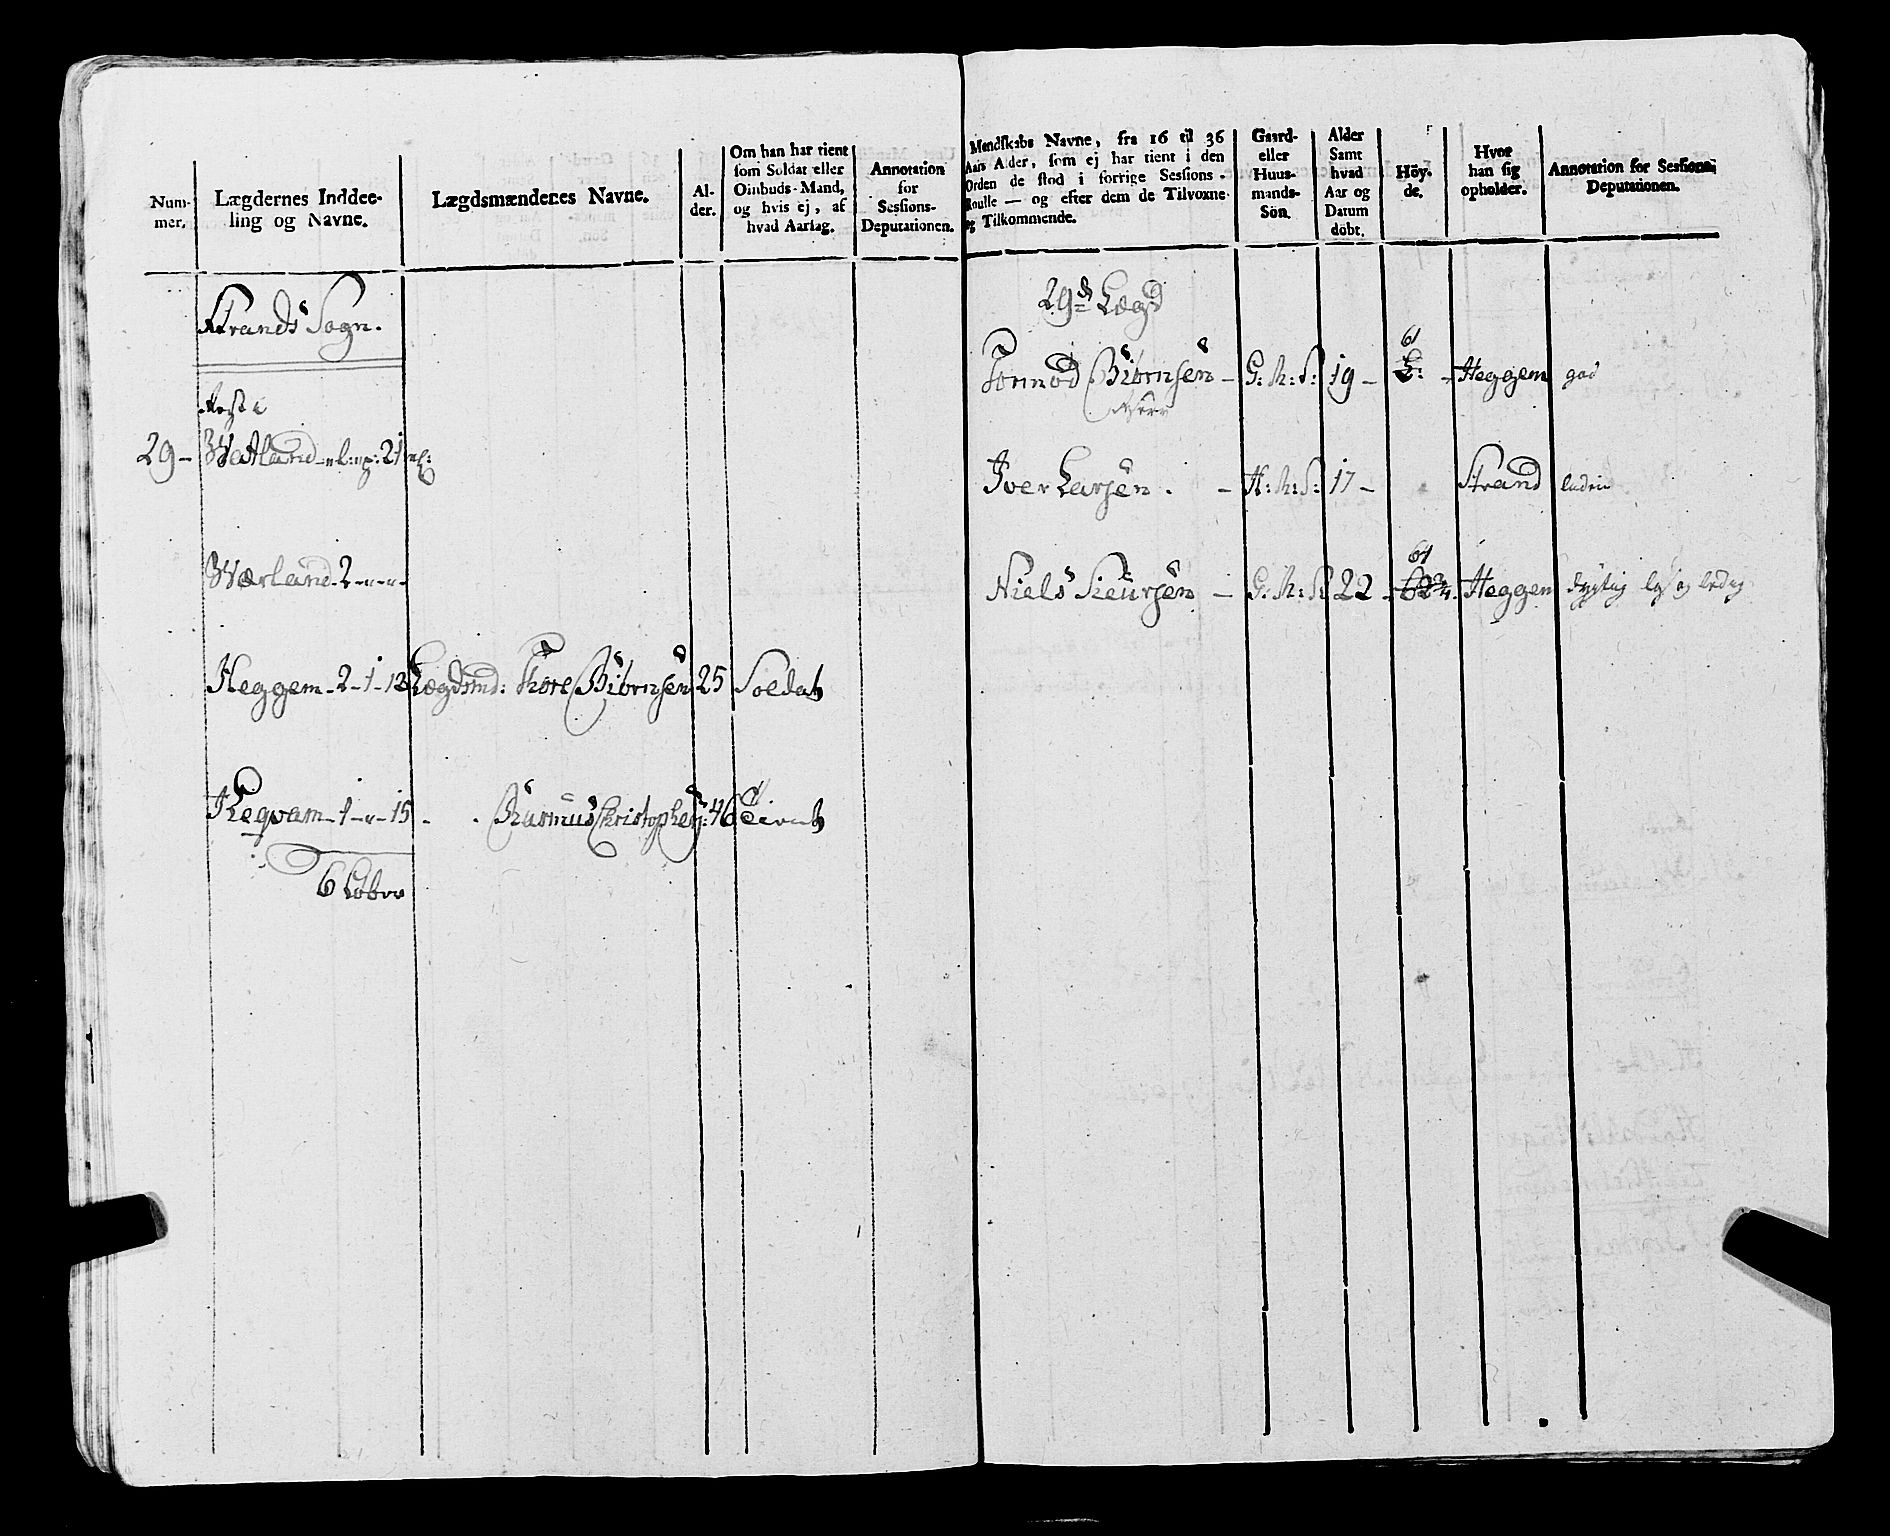 Num-
mer.
Lægdernes Inddee-
ling og Navne.
Lægdsmændenes Navne.
Al-
der.
Om han har tient
som Soldat eller
Ombuds-Mand,
og hvis ej, af
hvad Aarsag.
Annotation
for
Sessions-
Deputationen.
Strands Sogn.
29 -
Watland
Værland - 2 - " - "
Heggem - 2 - 1 - 12 Lægdsmd: Thore Biörnsen 25 Soldat
Qvam - 1 - " - 15 - Rasmus Christophers: 46
6 Löber
Mandskabs Navne, fra 16 til 36
Aars Alder, som ej har tient i den
Orden de stod i forrige Sessions-
Roulle — og efter dem de Tilvoxne
og Tilkommende.
Gaard-
eller
Huus-
mands-
Sön.
Alder
Samt
hvad
Aar og
Datum
döbt.
Höy-
de.
Hvor
han sig
opholder.
Annotation for Sessions-
Deputationen.
29de Lægd
Tormod Biörnsen - G: M: S: 19 - 61 Heggem god
Iver Larsen. - H: M: S: 17 - Strand
Niels Sieursen - G: M: S: 22 - 61 62 3/4 Heggem dygtig